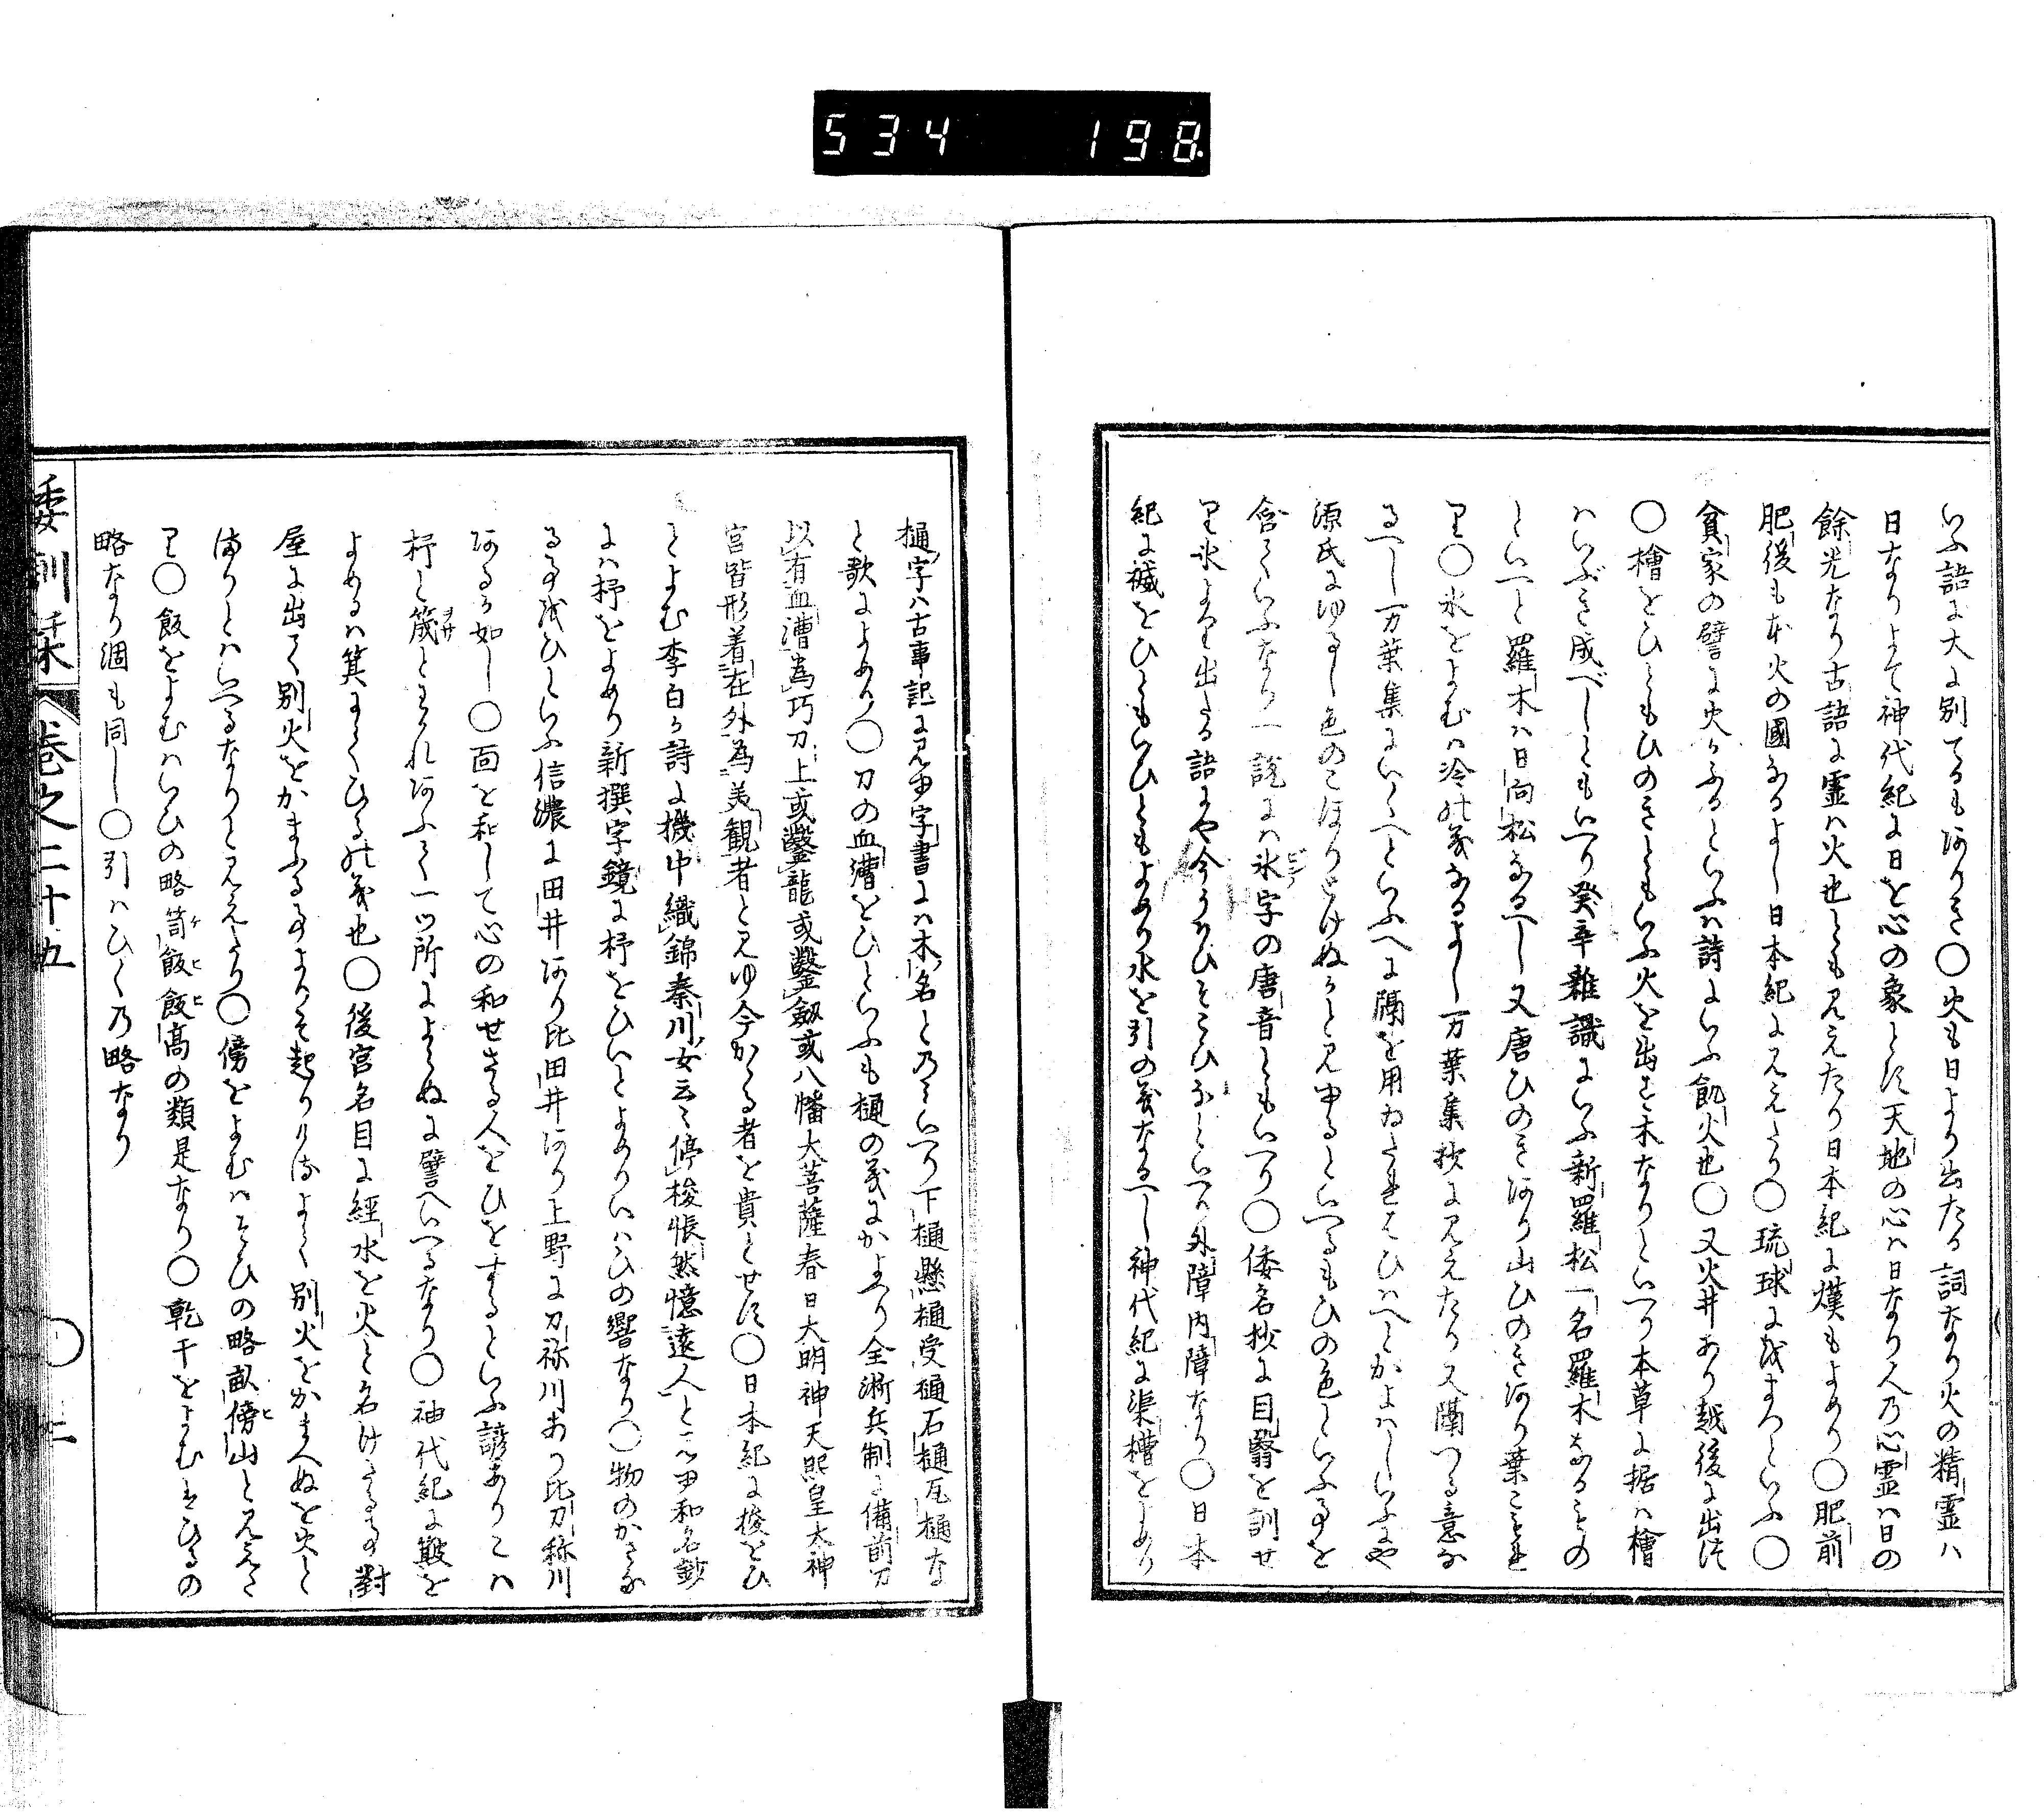 534 198
いふ語に大に別てるもありき〇火も日より出たる詞なり火の精霊ハ
日なりよて神代紀に日を心の象とす天地の心ハ日なり人乃心霊ハ日の
餘光なり古語に霊ハ火也とも見えたり日本紀に熯もよめり〇肥前
肥後も本火の國なるよし日本紀に見えたり〇琉球にまつといふ〇
貧家の譬に火かふるといふハ詩にいふ飢火也〇又火井あり越後に出す
〇檜をひともひのきともいふ火を出す木なりといへり本草に据ハ檜
ハいぶき成べしともいへり癸辛雜識にいふ新羅松一名羅木なるもの
といへと羅木ハ日向松なるへし又唐ひのきあり山ひのきあり葉こまれ
り〇氷をよむハ冷の義なるよし万葉集抄に見えたり又隔つる意な
るへし万葉集にいくへといふへに隔を用ゐたれはひハへとかよハしいふにや
源氏にゆるし色のこほりとけぬかと見ゆるといへるもひの色といふ事を
含ていふなり一説にハ氷字の唐音ともいへり〇倭名抄に目翳を訓せ
り氷より出たる語にや今うハひそこひなといへり外障内障なり〇日本
紀に襪をひともいひともよめり水を引の義なるへし神代紀に渠槽をよめり
樋字ハ古事記に見ゆ字書にハ木名と乃みいへり下樋懸樋受樋石樋瓦樋な
と歌によめり〇刀の血漕をひといふも樋の義にかよへり全浙兵制に備前刀
以有血漕為巧刀上或鑿龍或鑿劔或八幡大菩薩春日大明神天照皇大神
宮皆形着在外為美観者と見ゆ今かゝる者を貴とせす〇日本紀に梭をひ
とよむ李白か詩に機中織錦秦川女云々停梭悵然憶遠人と見ゆ和名鈔
にハ杼をよめり新撰字鏡に杼をひいとよめりいハひの響なり〇物のかさな
る事をひといふ信濃に田井あり比田井あり上野に刀祢川あり比刀祢川
あるか如し〇面を和して心の和せさる人をひをするといふ諺ありこハ
杼と筬とわかれあふて一ツ所によらぬに譬へいへるなり〇神代紀に簸を
よめるハ箕にてひる義也〇後宮名目に經水を火と名けたる事對
屋に出て別火をかまふる事より起りけるよし別火をかまへぬを火と
ほりとハいへるなりと見えたり〇傍をよむハそひの略畝傍山と見えた
り〇飯をよむハいひの略笥飯飯髙の類是なり〇乾干をよむもひるの
略なり涸も同し〇引ハひく乃略なり
倭訓栞 巻之二十五 〇 二